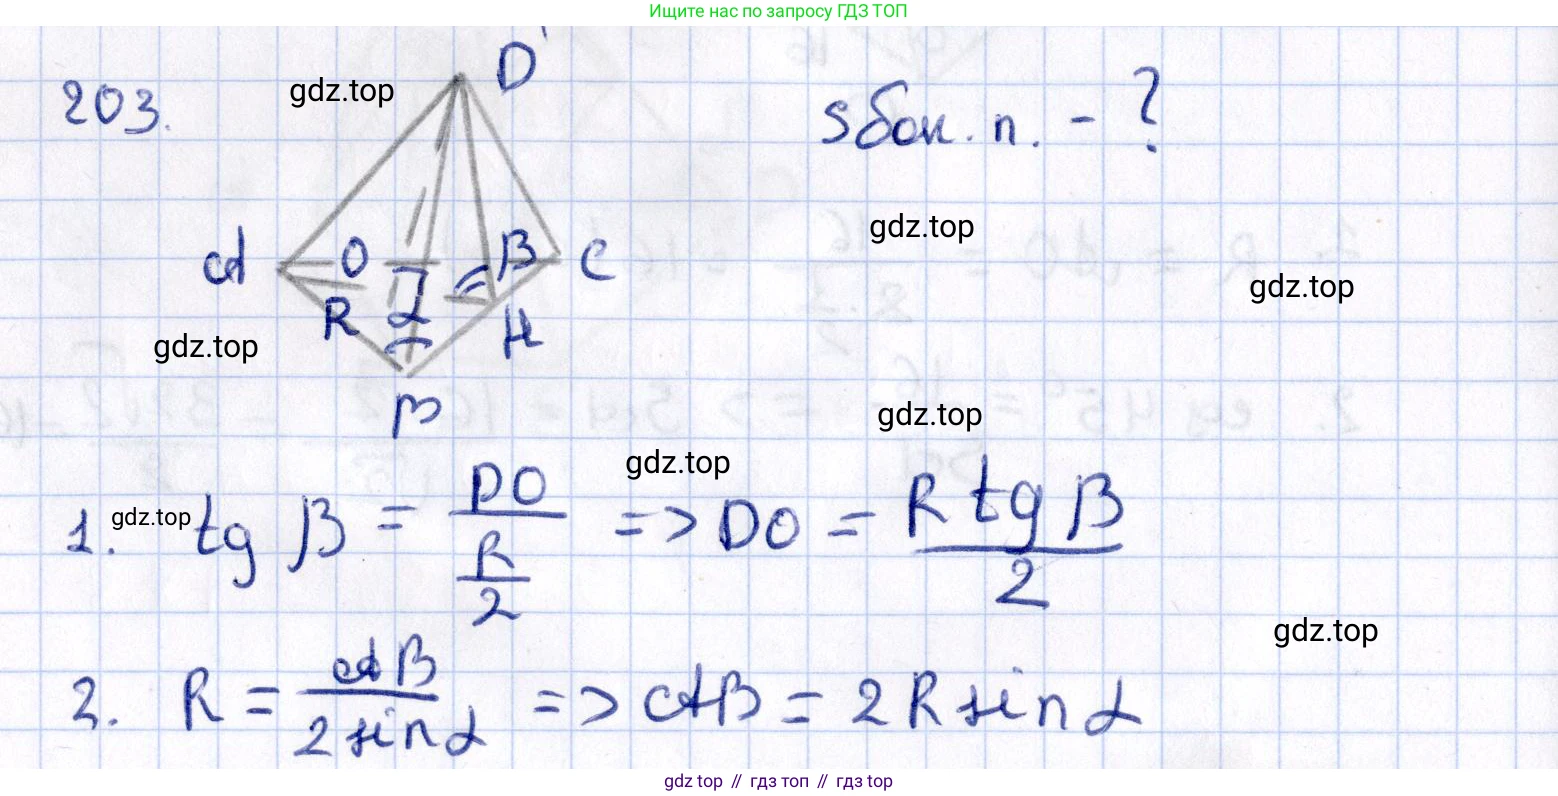 Ищите нас по запросу ГДЗ ТОП
203.
gdz.top
D
Sбок. п. - ?
gdz.top
A
O
β
C
gdz.top
R
α
H
gdz.top
B
gdz.top
gdz.top
1. gdz.top tg β = DO / (R/2) => DO = R tg β / 2
gdz.top
2. R = AB / (2 sin α) => AB = 2 R sin α
gdz top // гдз топ // gdz top